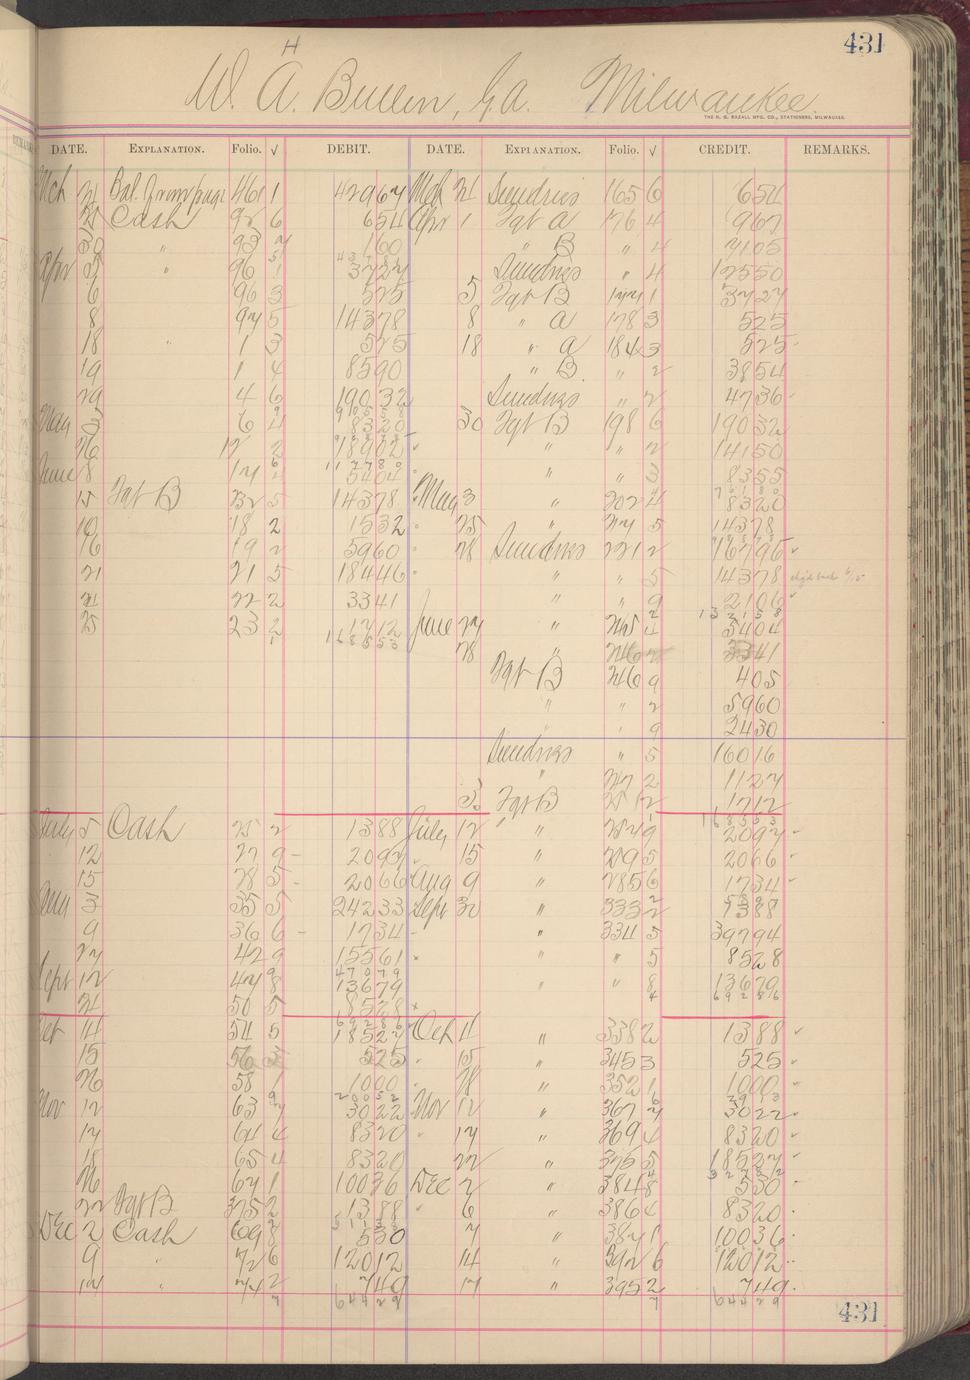 431
H
W. A. Bullen, G.A. Milwaukee.
THE H. G. RAZALL MFG. CO., STATIONERS, MILWAUKEE.
DATE. EXPLANATION. Folio. √ DEBIT. DATE. EXPLANATION. Folio. √ CREDIT. REMARKS.
Mch 21 Bal. from page 461 1 42967 Mch 21 Sundries 165 6 654
Cash 92 6 654 Apr 1 Fgt A 176 4 967
30 " 93 160 " B " 4 2105
Apr 3 " 96 1 3727 Sundries " 4 12550
6 96 3 525 5 Fgt B 177 1 3727
8 97 5 14378 8 " A 178 3 525
18 " 1 3 525 18 " A 184 3 525
19 1 4 8590 " B " 2 3854
29 4 6 19032 Sundries " 2 4736
May 3 6 4 8320 30 Fgt B 198 6 19032
26 12 2 18902 " " 2 14150
June 8 14 5404 " " 3 8355
15 Fgt B 5 14378 May 3 " 202 4 8320
10 18 2 1532 25 " 217 5 14378
16 19 2 5960 28 Sundries 221 2 16796
21 21 5 18446 " " 5 14378
21 22 2 3341 " " 9 2106
25 23 2 1712 June 27 " 245 4 5404
168553 28 " 246 3341
Fgt B 246 9 405
" " 2 5960
" 9 2430
Sundries " 5 16016
" 247 2 1127
3 Fgt B 251 2 1712
168553
July 5 Cash 25 2 1388 July 12 " 257 9 2097
12 27 9 2097 15 " 259 5 2066
15 28 5 2066 Aug 9 " 285 6 1734
Aug 3 35 5 24233 Sept 30 " 333 2 7388
9 36 6 1734 " 334 5 39794
27 42 9 15561 " " 5 8528
47079
Sept 12 47 8 13679 " " 8 13679
21 50 5 8528
69286
Oct 14 54 5 18527 Oct 4 " 338 2 1388
15 56 3 525 15 " 345 3 525
26 58 1 1000 28 " 352 1 1000
Nov 12 63 7 3022 Nov 12 " 367 7 3022
17 64 4 8320 17 " 369 4 8320
18 65 4 8320 22 " 375 5 18527
26 67 1 10036 Dec 2 " 384 8 530
22 Fgt B 375 2 1388 6 " 386 4 8320
Dec 2 Cash 69 8 530 7 " 387 1 10036
9 " 72 6 12012 14 " 392 6 12012
17 " 74 2 749 17 " 395 2 749
7 64429 7 64429
431